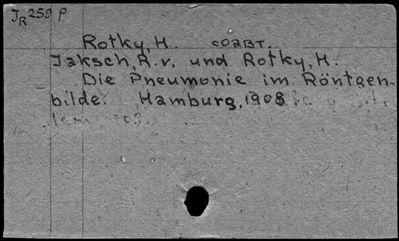 JR 259 P
Rotky, H. соавт.
Jaksch, R. v. und Rotky, H.
Die Pneumonie im Röntgen-
bilde. Hamburg, 1908